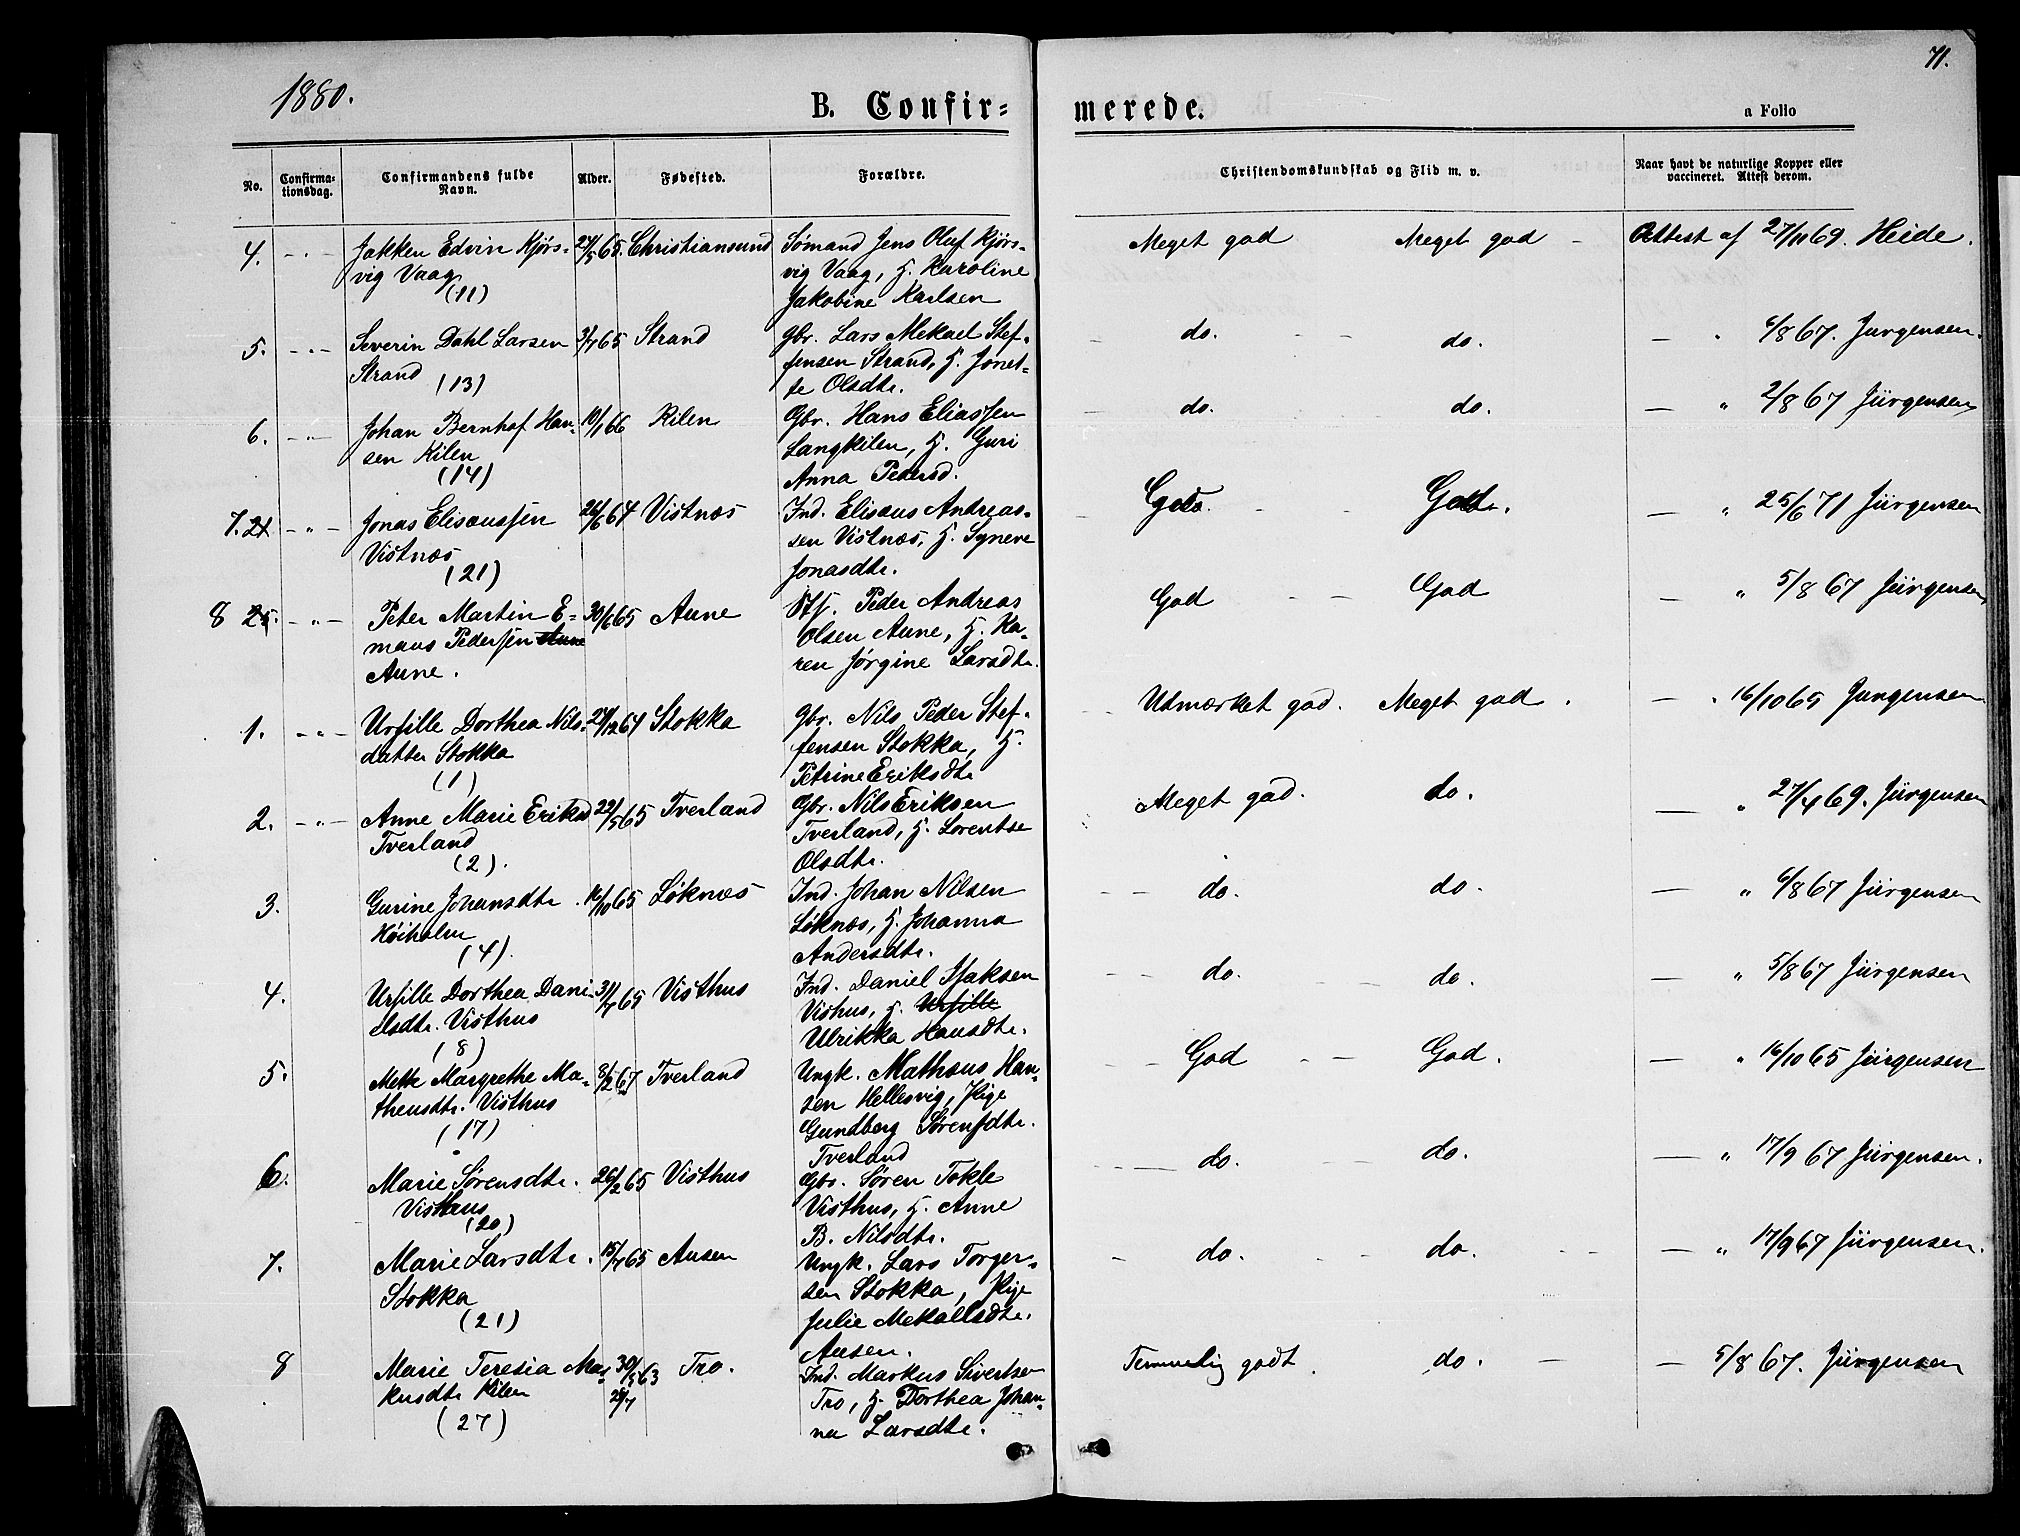 1880.
B. Confir=
merede.
a Folio
71.
No.
Confirma-
tionsdag.
Confirmandens fulde
Navn.
Alder.
Fødested.
Forældre.
Christendomskundskab og Flid m. v.
Naar havt de naturlige Kopper eller
vaccineret. Attest derom.
4. - " - Jakken Edvin Kjørs- 27/5 65. Christiansund Sømand Jens Oluf Kjørs- Meget god Meget god - Attest af 27/10 69. Heide.
vig Vaag vig Vaag, H. Karoline
(11) Jakobine Karlsen
5. - " - Severin Dahl Larsen 3/7 65 Strand Gbr. Lars Mekael Stef- - do. - - do. - " 6/8 67. Jürgensen.
Strand fensen Strand, H. Jonet-
(13) te Olsdtr.
6. - " - Johan Bernhof Han- 10/1 66 Kilen Gbr. Hans Eliassen - do. do. - " 2/8 67 Jürgensen
sen Kilen Langkilen, H. Guri
(14) Anna Pedersd.
7. 21 - " - Jonas Elisæussen 26/6 64 Vistnæs Ind. Elisæus Andreas- - - " 25/6 71 Jürgensen
Vistnæs sen Vistnæs, H. Synere
(21) Jonasdtr.
8 25. - " - Peter Martin E= 30/6 65 Aune Peder Andreas God - - God " 5/8 67 Jürgensen
maus Pedersen Aune Olsen Aune, H. Ka-
Aune. ren Jørgine Larsdtr.
1. - " - Ursille Dorthea Nils- 27/12 64 Stokka Gbr. Nils Peder Stef- - Udmærket god. Meget god. - " 16/10 65 Jürgensen
datter Stokka fensen Stokka, H.
(1) Petrine Eriksdtr
2. - " - Anne Marie Eriksd 22/5 65 Tverland Gbr. Nils Eriksen Meget god. do. - " 27/4 69. Jürgensen
Tverland Tverland, H. Lorentse
(2). Olsdtr.
3. Gurine Johansdtr. 16/10 65 Løknæs Ind. Johan Nilsen - - do. do. - " 6/8 67 Jürgensen
Høiholm Løknæs, H. Johanna
(4) Andersdtr.
4. Ursille Dorthea Dani- 31/7 65 Visthus Ind. Daniel Isaksen - - do. - - do. - " 5/8 67 Jürgensen
elsdtr. Visthus Vishus, H. Ursille
(8) Ulrikka Hansdtr.
5. Mette Margrethe Ma- 8/2 67 Tverland Ungk. Mathæus Han- - - God - - God. - " 16/10 65 Jürgensen
theusdtr. Visthus sen Hellesvig, Pige
(17) Gundberg Sørensdtr.
Tverland
6. Marie Sørensdtr. 26/2 65 Visthus Gbr. Søren Tokle - - - do. - - do. - " 17/9 67 Jürgensen.
Visthus Visthus, H. Anne
(20) B. Nilsdtr.
7. Marie Larsdtr. 15/7 65 Ausen Ungk. Lars Torger- - do. - do. - - - " 17/9 67 Jürgensen.
Stokka sen Stokka, Pige
(21) Julie Mekalsdtr.
Ausen.
8 Marie Teresia Mar- 30/5 63 Tro. Ind. Markus Sivertsen Temmelig godt. do. - - 5/8 67. Jürgensen
kusdtr Kilen 28/7 Tro, H. Dorthea Johan-
(27) na Larsdtr.